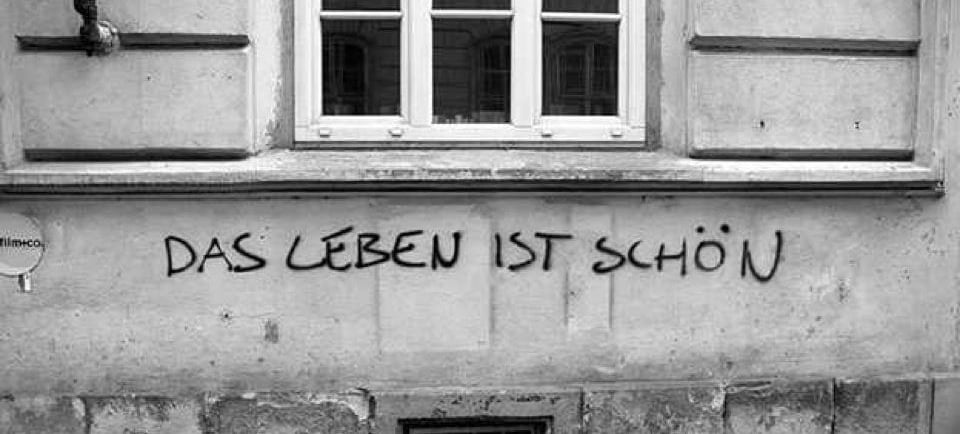 film+co.
DAS LEBEN IST SCHÖN